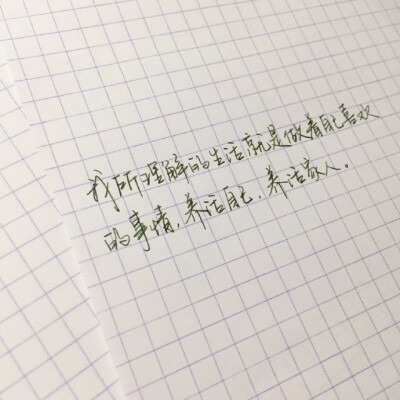 我所理解的生活就是做着自己喜欢
的事情,养活自己,养活家人。